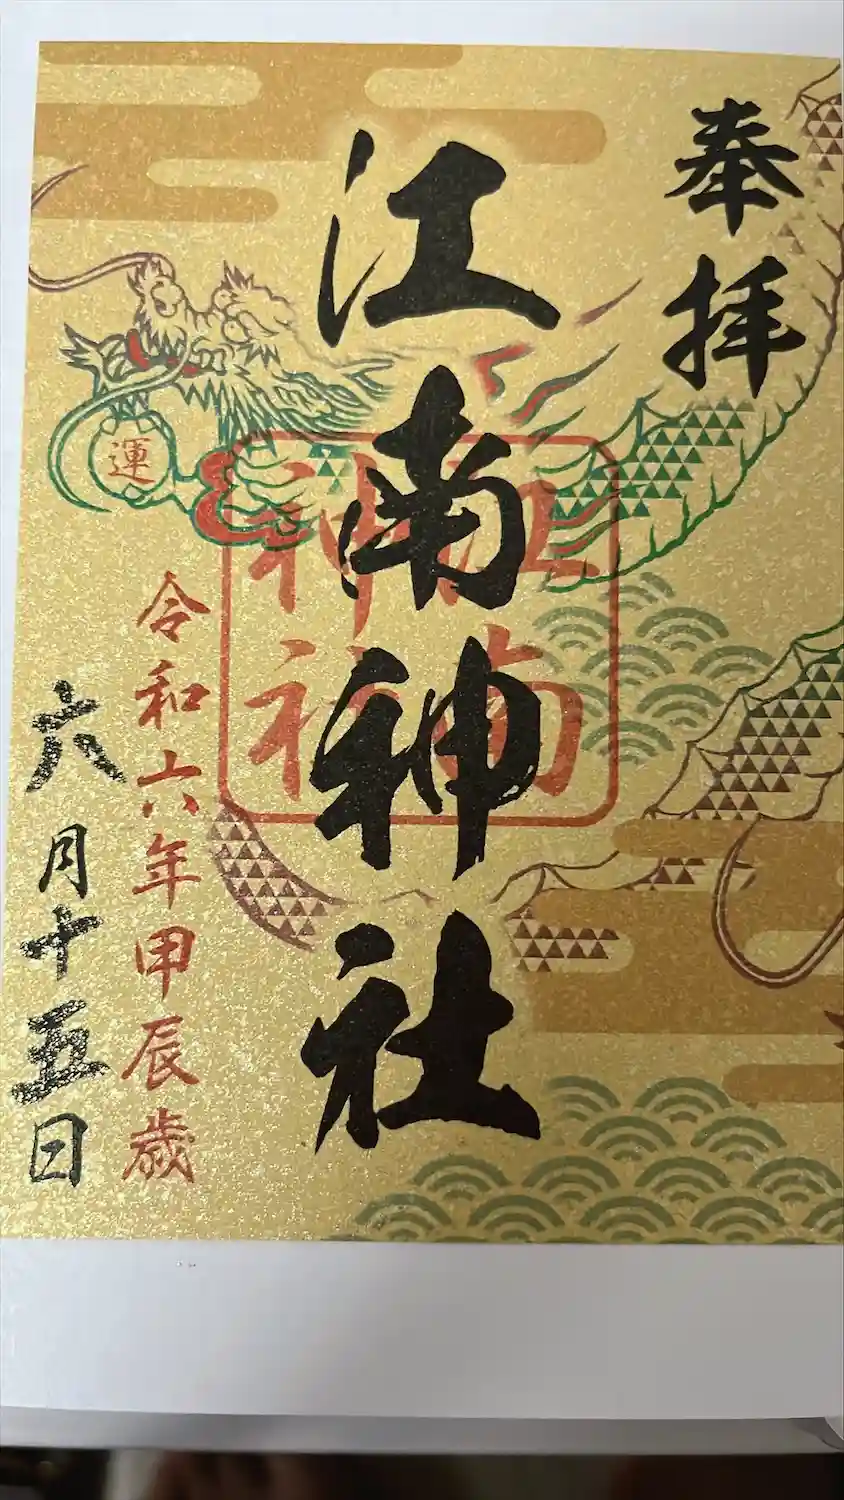 奉拝
江南神社
江南
神社
運
令和六年甲辰歳
六月十五日